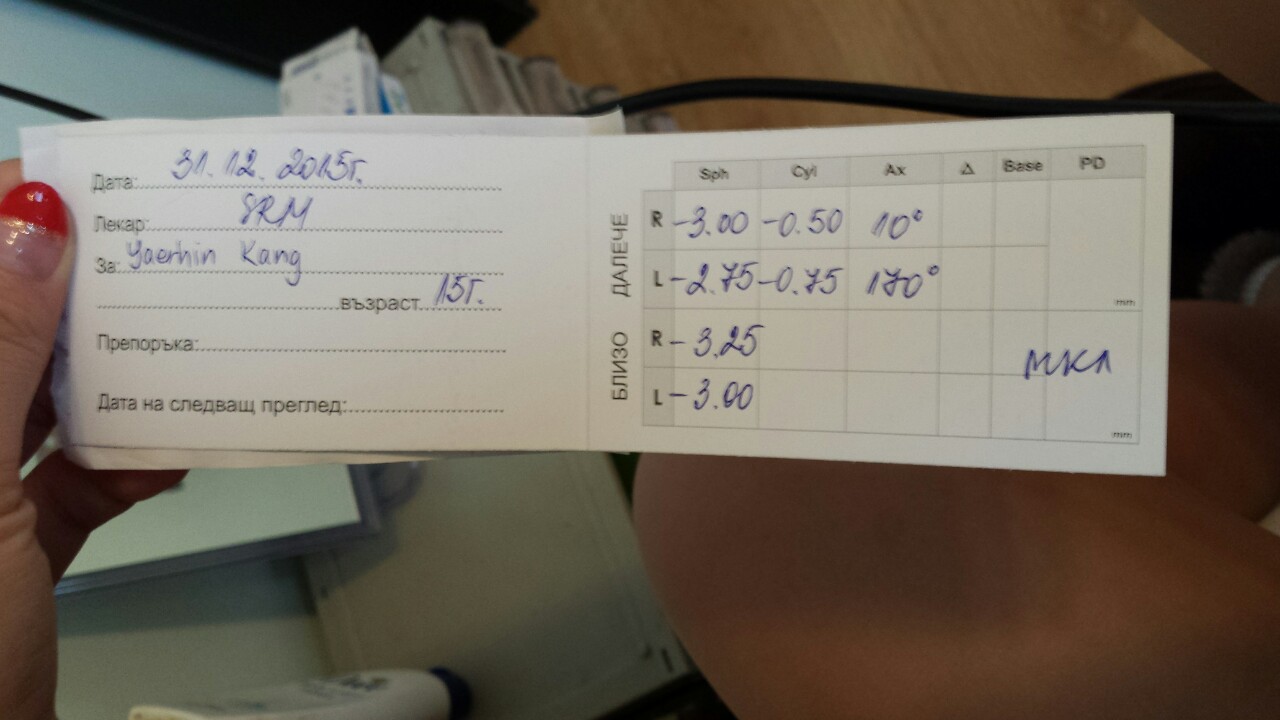 Дата: 31.12.2015г.
Лекар: SRM
За: Yaerhin Kang
възраст 15г.
Препоръка:
Дата на следващ преглед:
Sph Cyl Ax Δ Base PD
ДАЛЕЧЕ
R -3.00 -0.50 10°
L -2.75 -0.75 170°
mm
БЛИЗО
R -3.25
L -3.00
МКЛ
mm